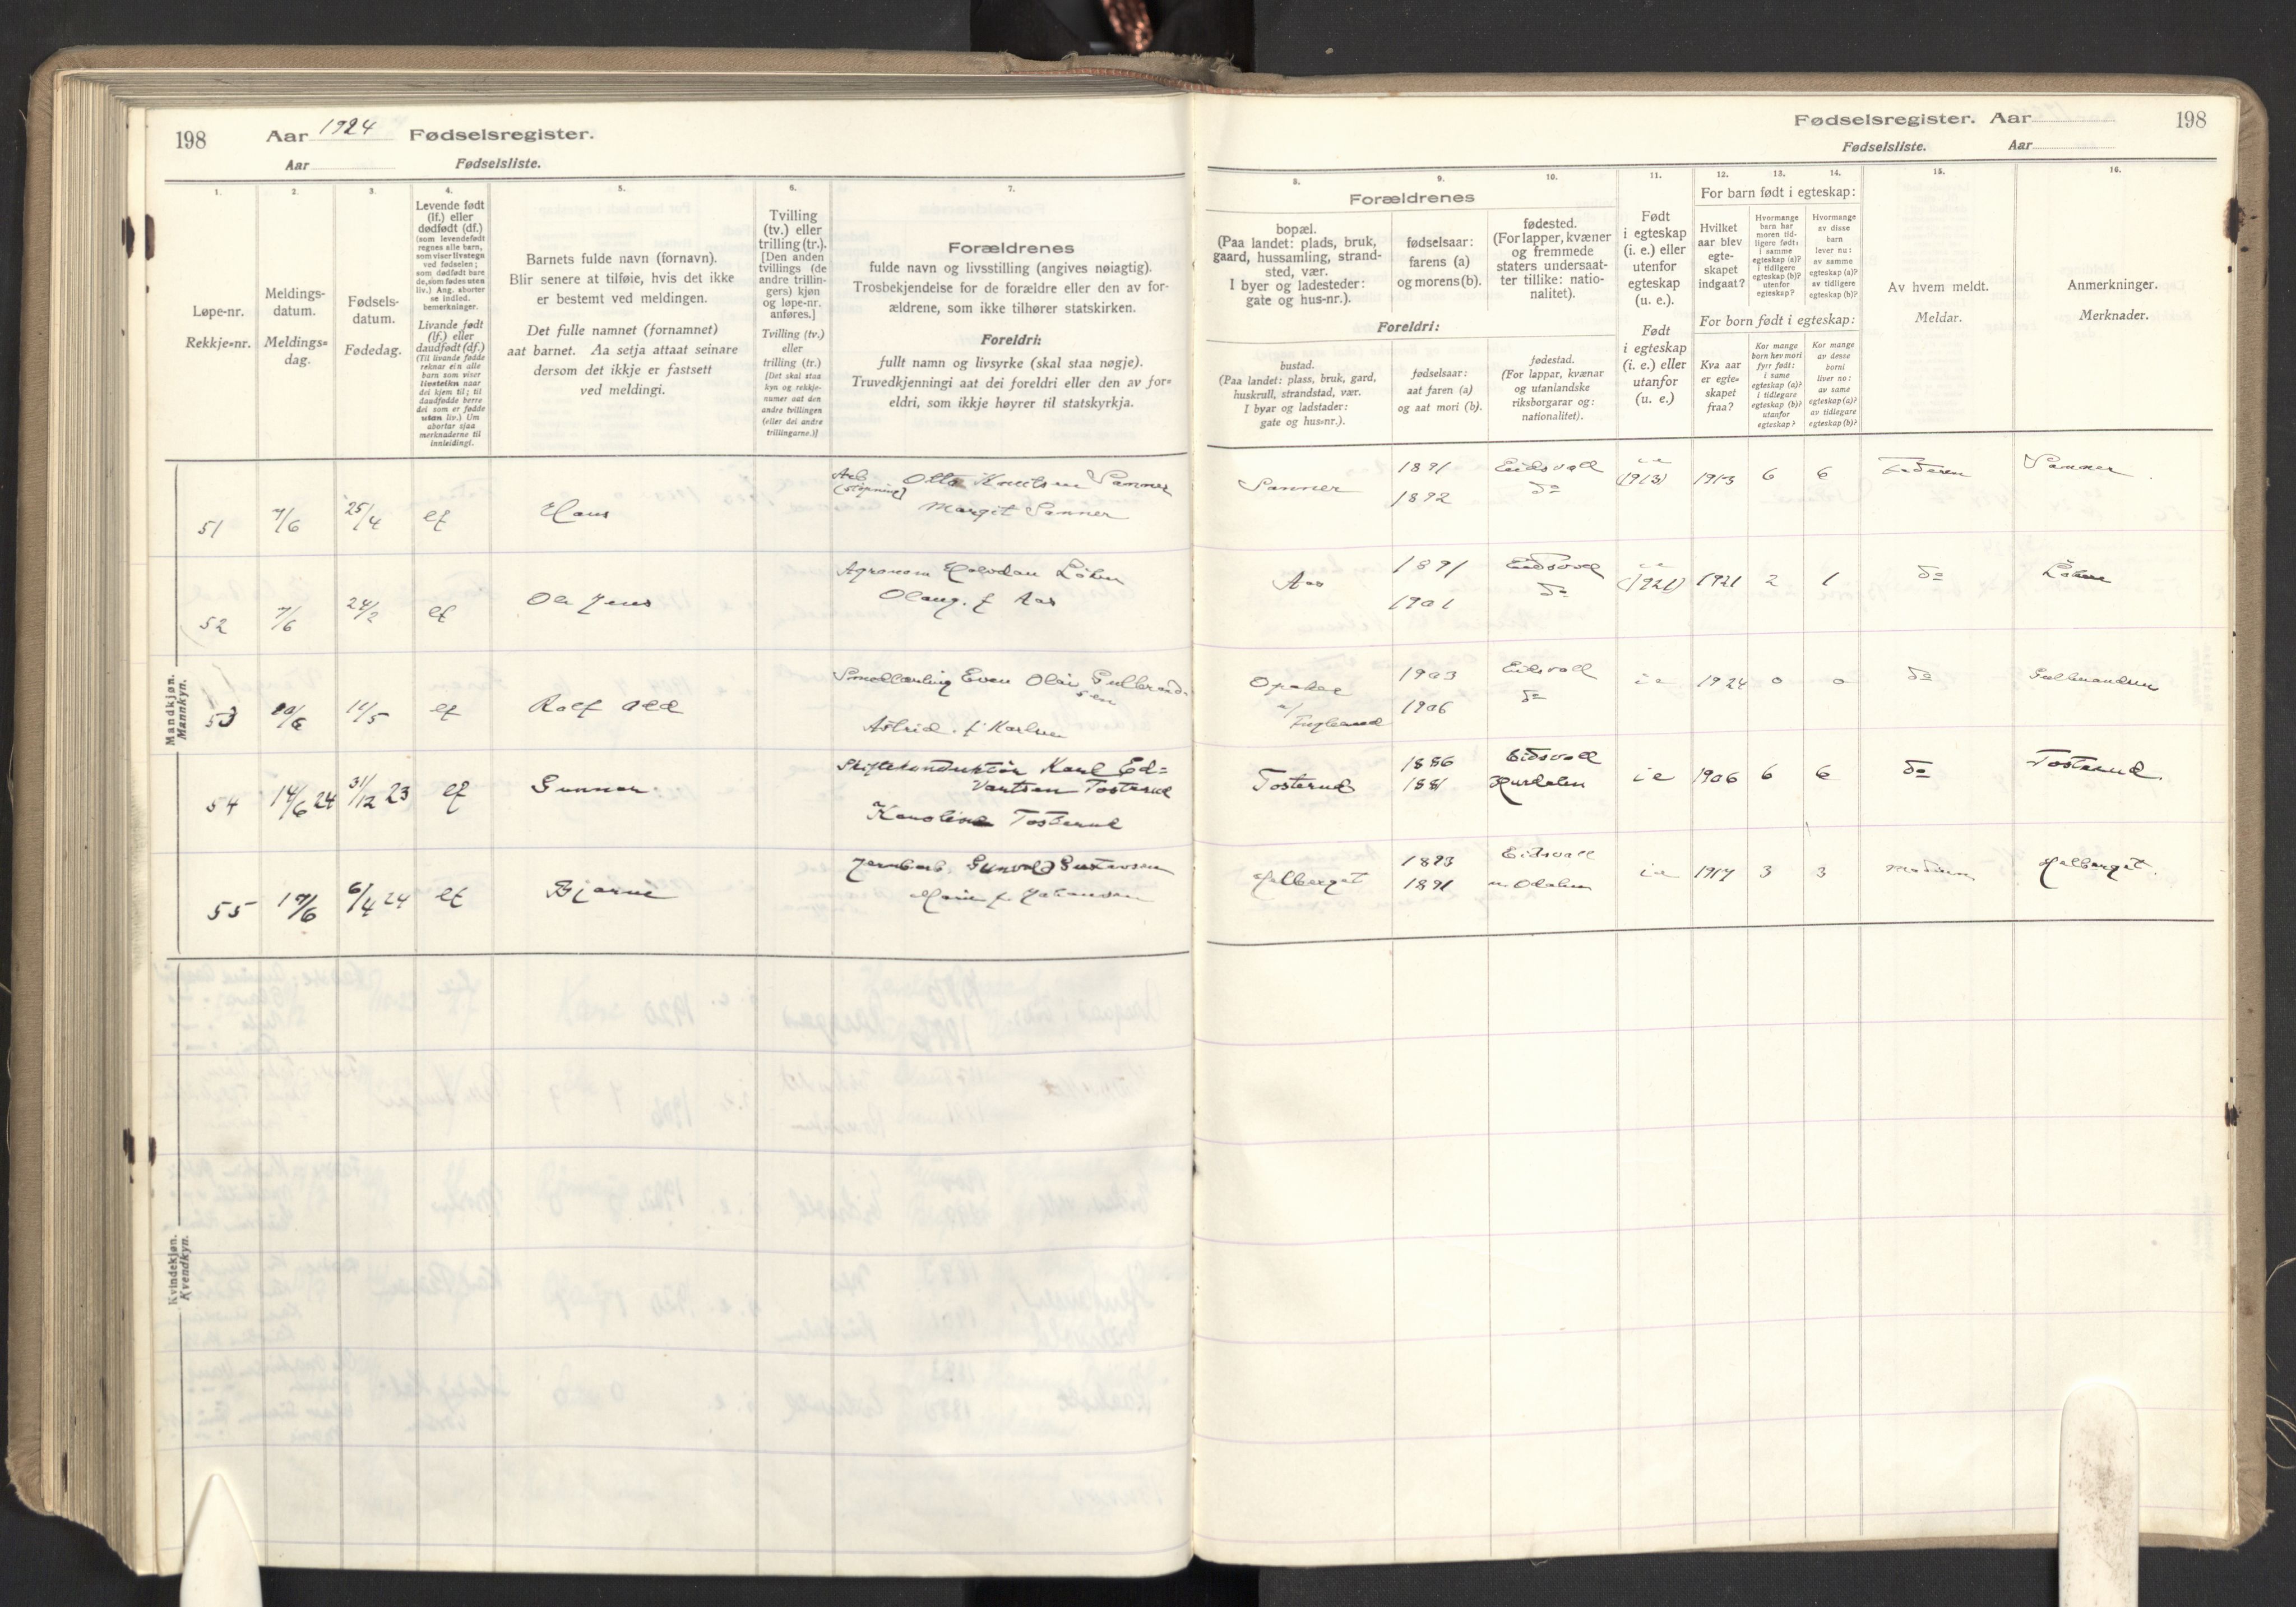 198
Aar 1924 Fødselsregister.
Aar Fødselsliste.
1.
2.
3.
4.
5.
6.
7.
Løpe-nr.
Rekkje-nr.
Meldings-
datum.
Meldings-
dag.
Fødsels-
datum.
Fødedag.
Levende født
(lf.) eller
dødfødt (df.)
(som levendefødt
regnes alle barn,
som viser livstegn
ved fødselen;
som dødfødt bare
de, som fødes uten
liv.) Ang. aborter
se indled.
bemerkninger.
Livande født
(lf.) eller
daudfødt (df.)
(Til livande fødde
reknar ein alle
barn som viser
livsteikn naar
dei kjem til; til
daudfødde berre
dei som er fødde
utan liv.) Um
abortar sjaa
merknaderne til
innleidingi.
Barnets fulde navn (fornavn).
Blir senere at tilføie, hvis det ikke
er bestemt ved meldingen.
Det fulle namnet (fornamnet)
aat barnet. Aa setja attaat seinare
dersom det ikkje er fastsett
ved meldingi.
Tvilling
(tv.) eller
trilling (tr.).
[Den anden
tvillings (de
andre trillin-
gers) kjøn
og løpe-nr.
anføres.]
Tvilling (tv.)
eller
trilling (tr.)
[Det skal staa
kyn og rekkje-
numer aat den
andre tvillingen
(eller dei andre
trillingarne.)]
Forældrenes
fulde navn og livsstilling (angives nøiagtig).
Trosbekjendelse for de forældre eller den av for-
ældrene, som ikke tilhører statskirken.
Foreldri:
fullt namn og livsyrke (skal staa nøgje).
Truvedkjenningi aat dei foreldri eller den av for-
eldri, som ikkje høyrer til statskyrkja.
Mandkjøn.
Mannkyn.
51 7/6 25/4 lf Hans Arb Otto Knutsen Sanner
Margit Sanner
52 7/6 24/2 lf Ole Jens Agronom Halvdan Løken
Olaug f Aas
53 10/6 11/5 lf Rolf Odd Smedlærling Even Olai Gulbrand-
sen
Astrid f Karlsen
54 14/6 24 31/12 23 lf Gunnar Skiftekonduktør Karl Ed-
vartsen Tosterud
Karoline Tosterud
55 17/6 6/4 24 lf Bjarne Jernbarb. Gunvald Gustavsen
Marie f. Johansen
Kvindekjøn.
Kvendkyn.
Fødselsregister. Aar 198
Fødselsliste. Aar
8.
9.
10.
11.
12.
13.
14.
15.
16.
Forældrenes
bopæl.
(Paa landet: plads, bruk,
gaard, hussamling, strand-
sted, vær.
I byer og ladesteder:
gate og hus-nr.).
fødselsaar:
farens (a)
og morens (b).
fødested.
(For lapper, kvæner
og fremmede
staters undersaat-
ter tillike: natio-
nalitet).
Foreldri:
bustad.
(Paa landet: plass, bruk, gard,
huskrull, strandstad, vær.
I byar og ladstader:
gate og hus-nr.).
fødselsaar:
aat faren (a)
og aat mori (b).
fødestad.
(For lappar, kvænar
og utanlandske
riksborgarar og:
nationalitet).
Født
i egteskap
(i. e.) eller
utenfor
egteskap
(u. e.).
Født
i egteskap
(i. e.) eller
utanfor
egteskap
(u. e.)
For barn født i egteskap:
Hvilket
aar blev
egte-
skapet
indgaat?
Hvormange
barn har
moren tid-
ligere født:
i samme
egteskap (a)?
i tidligere
egteskap (b)?
utenfor
egteskap?
Hvormange
av disse
barn
lever nu:
av samme
egteskap (a)?
av tidligere
egteskap (b)?
For born født i egteskap:
Kva aar
er egte-
skapet
fraa?
Kor mange
born hev mori
fyrr født:
i same
egteskap (a)?
i tidlegare
egteskap (b)?
utanfor
egteskap?
Kor mange
av desse
borni
liver no:
av same
egteskap (a)?
av tidlegare
egteskap (b)?
Av hvem meldt.
Meldar.
Anmerkninger.
Merknader.
Sanner 1891 Eidsvoll i e (1913) 1913 6 6 Faderen Sanner
1892 do
Aas 1891 Eidsvoll i e (1921) 1921 2 1 do Løken
1901 do
Opaker 1903 Eidsvoll i e 1924 0 0 do Gulbrandsen
1906 do
Tosterud 1886 Eidsvoll i e 1906 6 6 do Tosterud
1881 Hurdalen
Hælberget 1893 Eidsvoll i e 1917 3 3 Moderen Hælberget.
1891 n. Odalen